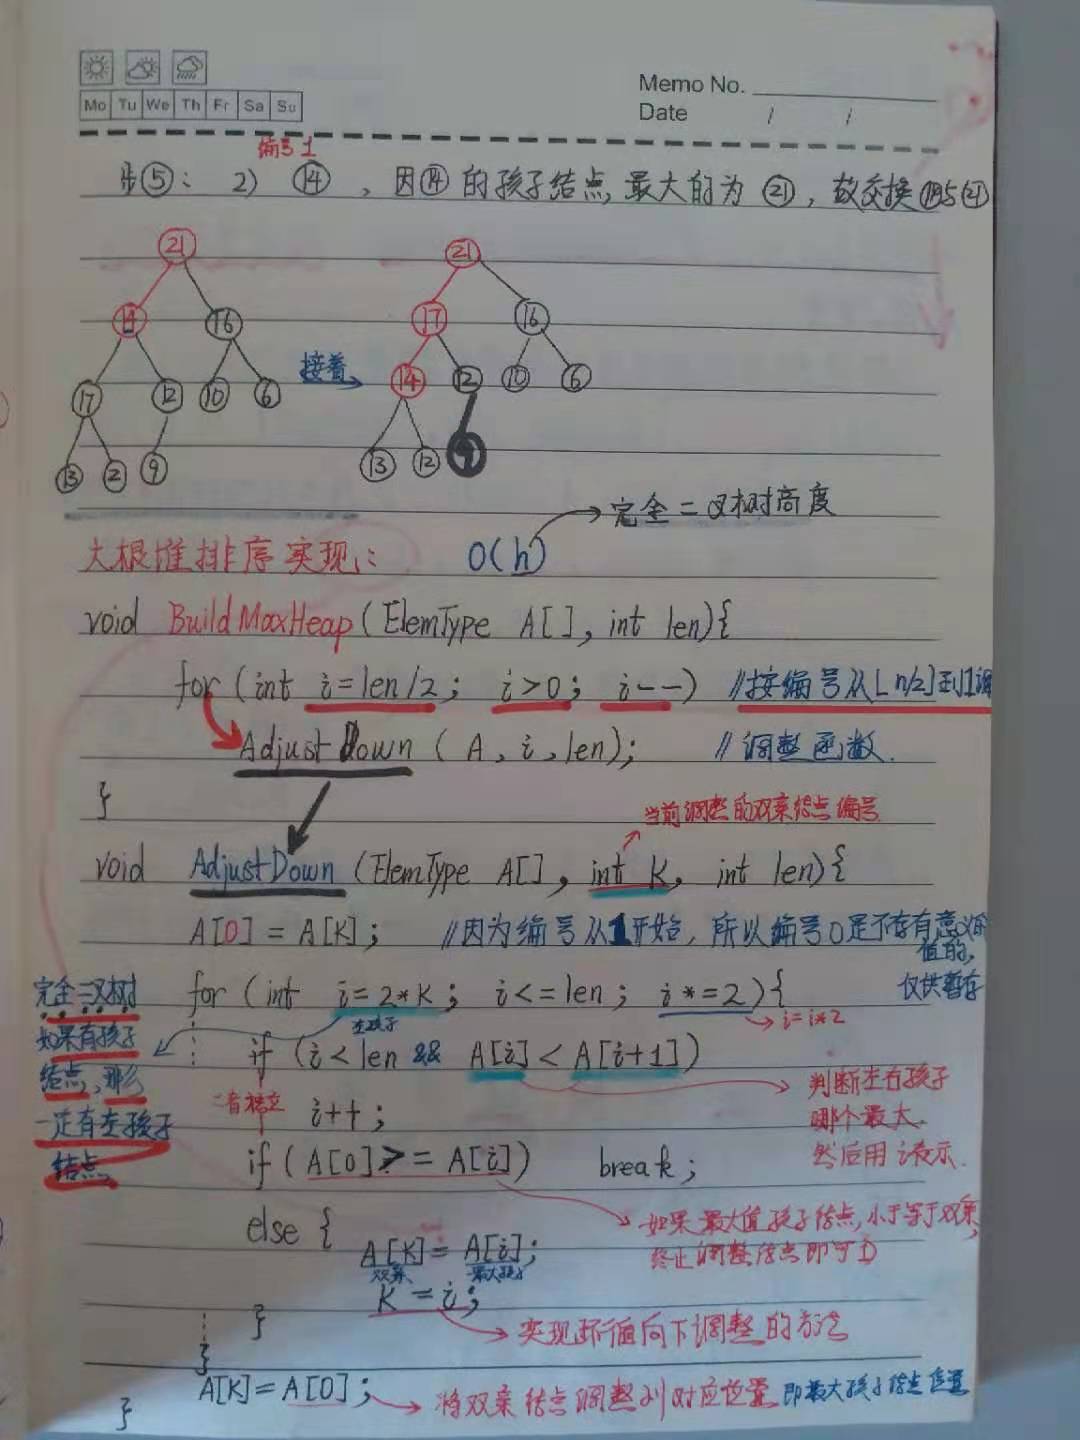 Memo No.
Mo Tu We Th Fr Sa Su
Date / /
编号1
步⑤: 2) ⑭ , 因⑭的孩子结点,最大的为 ㉑, 故交换⑭与㉑
21 21
14 16 17 16
接着
17 12 10 6 14 12 10 6
13 2 9 13 12 9
完全二叉树高度
大根堆排序实现: O(h)
void BuildMaxHeap(ElemType A[], int len){
for (int i=len/2; i>0; i--) //按编号从⌊n/2⌋到1调
AdjustDown (A, i, len); //调整函数.
}
当前调整的双亲结点编号
void AdjustDown (ElemType A[], int K, int len){
A[0] = A[K]; //因为编号从1开始, 所以编号0是不存有意义的
值的,
仅供暂存
for (int i=2*K; i<=len; i*=2){
i=i*2
左孩子
完全二叉树
如果有孩子
结点,那么
一定有左孩子
结点
if (i<len && A[i]<A[i+1])
判断左右孩子
哪个最大.
然后用i表示.
二者独立
i++;
if (A[0]>=A[i]) break;
如果最大值孩子结点,小于等于双亲,
终止调整结点即可
else {
A[K]=A[i];
双亲 最大孩子
K=i;
实现环循向下调整的方法
}
}
A[K]=A[0];
将双亲结点调整到对应位置 即最大孩子结点位置
}